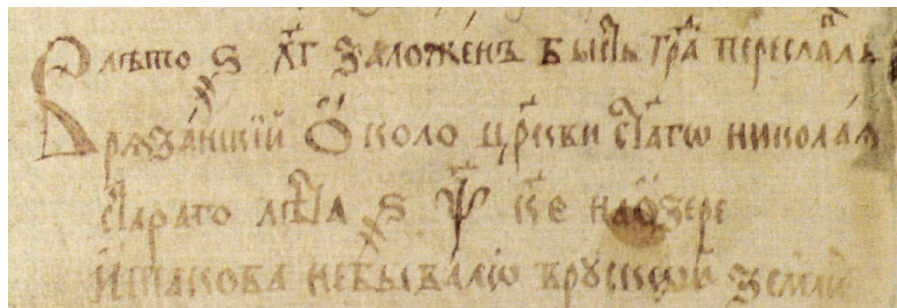 В лѣто ҂ѕ҃ х҃г заложенъ бысть гра переславль
рязанскїй Около церкви стаго николая
стараго лѣта ҂ѕ ѱ҃ на озере
небывало врускои земли